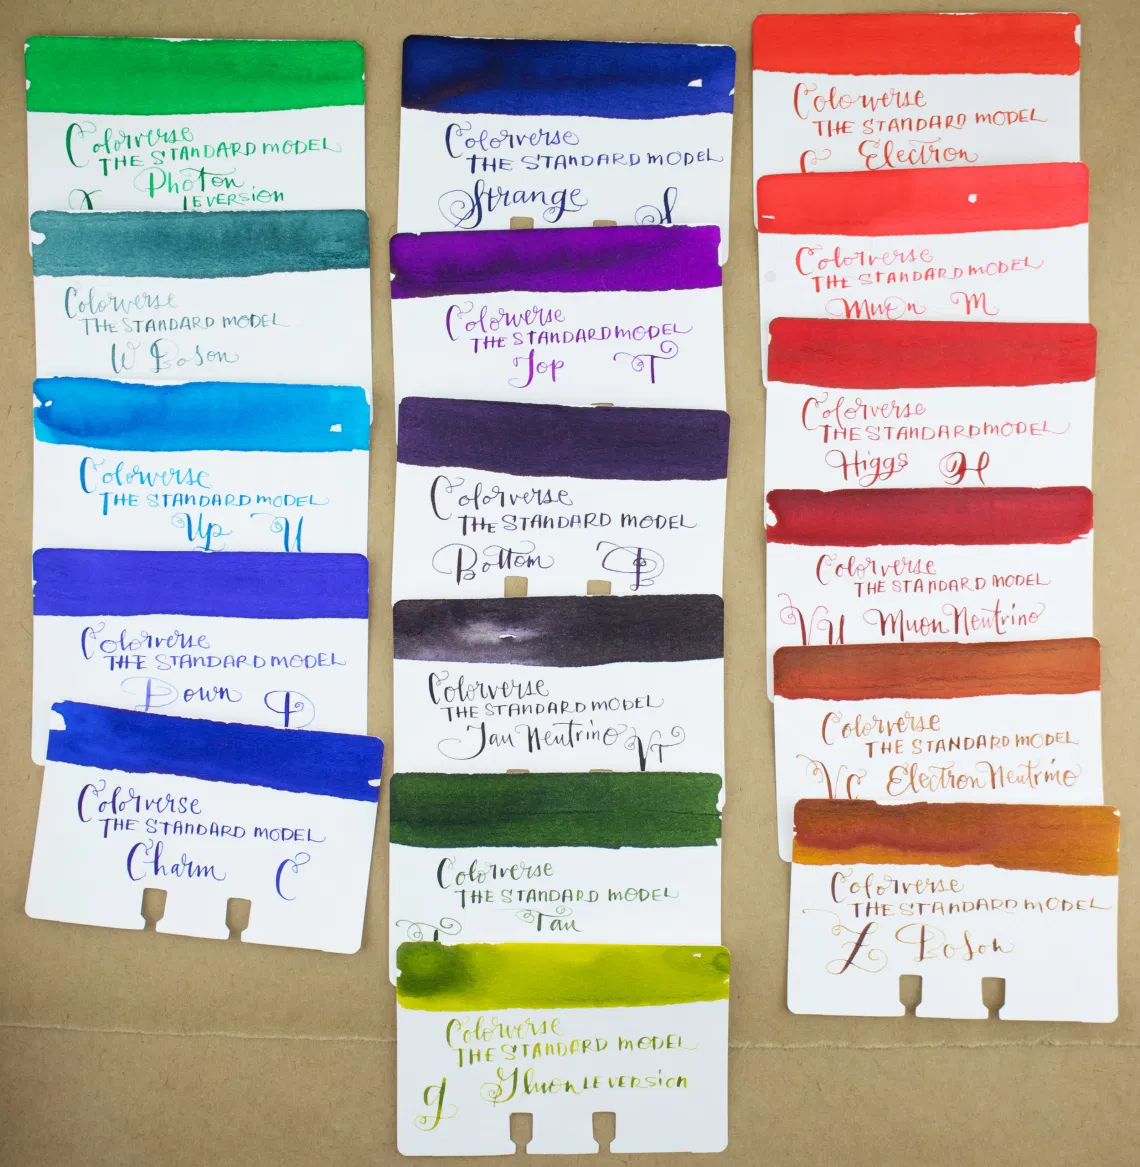 Colorverse
THE STANDARD MODEL
Photon
LE VERSION
Colorverse
THE STANDARD MODEL
W Boson
Colorverse
THE STANDARD MODEL
Up U
Colorverse
THE STANDARD MODEL
Down D
Colorverse
THE STANDARD MODEL
Charm C
Colorverse
THE STANDARD MODEL
Strange S
Colorverse
THE STANDARD MODEL
Top T
Colorverse
THE STANDARD MODEL
Bottom B
Colorverse
THE STANDARD MODEL
Tau Neutrino VT
Colorverse
THE STANDARD MODEL
Tau
Colorverse
THE STANDARD MODEL
g Gluon LE VERSION
Colorverse
THE STANDARD MODEL
Electron
Colorverse
THE STANDARD MODEL
Muon M
Colorverse
THE STANDARD MODEL
Higgs H
Colorverse
THE STANDARD MODEL
VU Muon Neutrino
Colorverse
THE STANDARD MODEL
Electron Neutrino
Colorverse
THE STANDARD MODEL
Z Boson